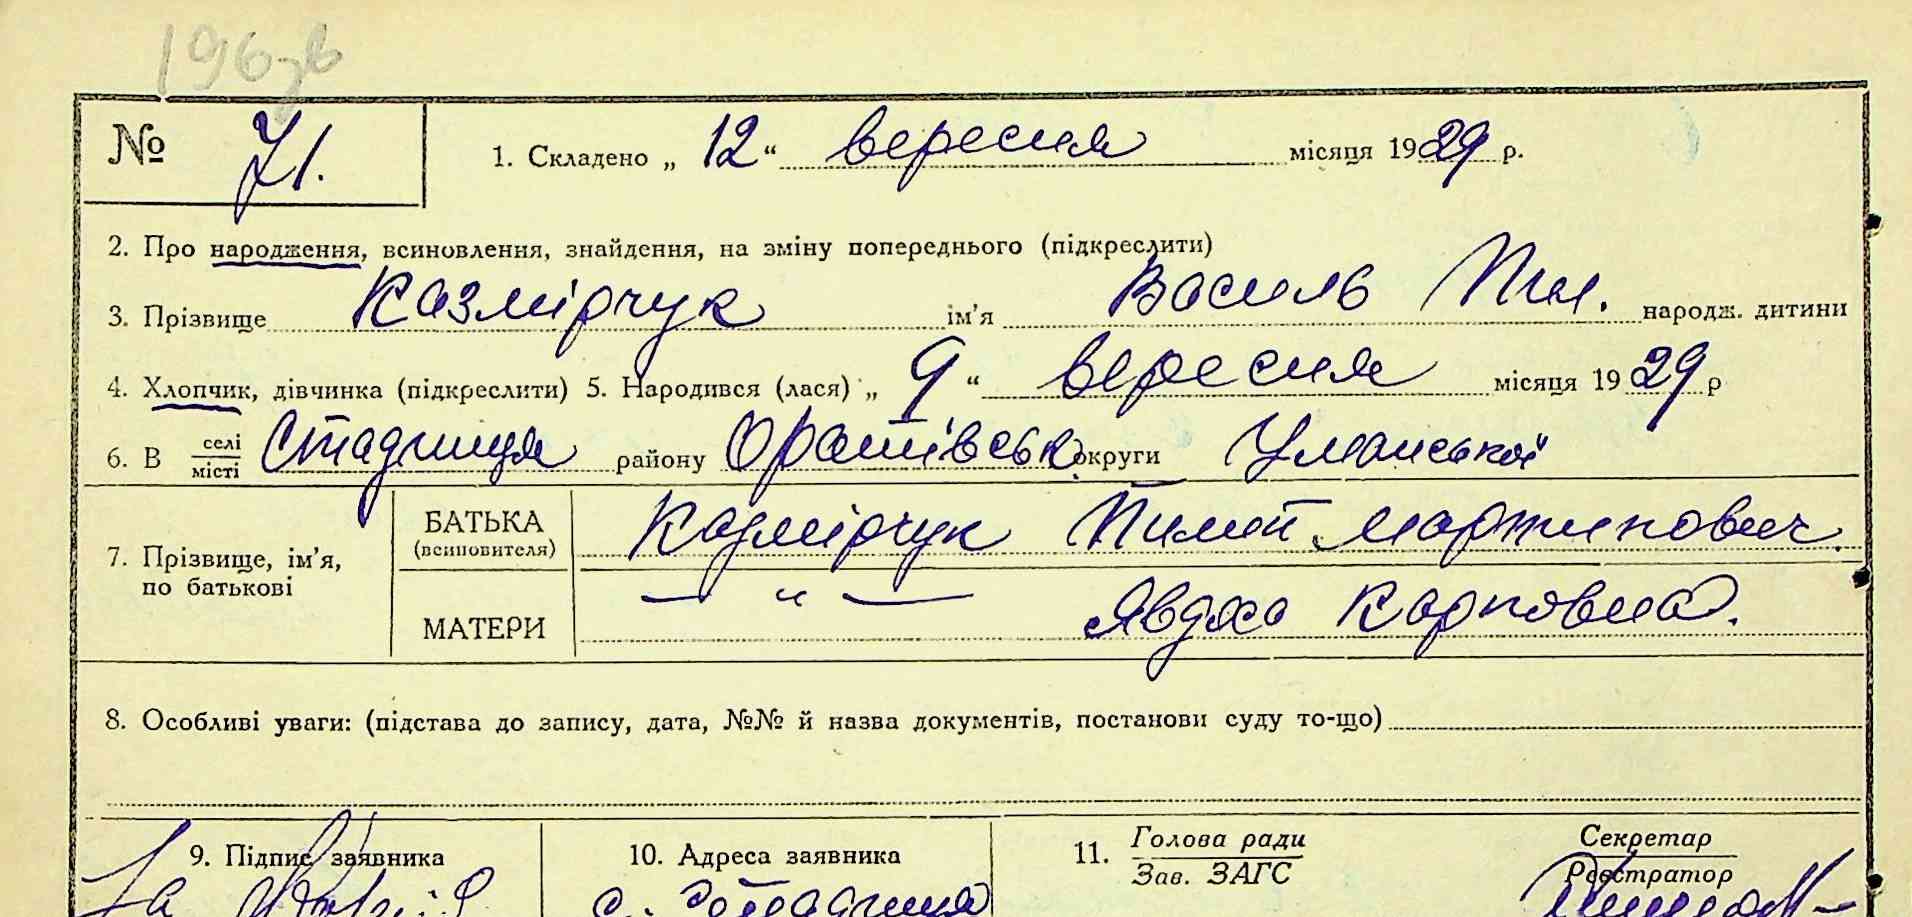 196зв
№ 71.
1. Складено „ 12 “ вересня місяця 1929 р.
2. Про народження, всиновлення, знайдення, на зміну попереднього (підкреслити)
3. Прізвище Казмірчук ім’я Василь Тим. народж. дитини
4. Хлопчик, дівчинка (підкреслити) 5. Народився (лася) „ 9 “ вересня місяця 1929 р
6. В селі місті Стадниця району Оратівськ. округи Уманської
7. Прізвище, ім’я, по батькові
БАТЬКА (всиновителя) Казмірчук Тимот. Мартинович.
МАТЕРИ — „ — Явдха Карповна.
8. Особливі уваги: (підстава до запису, дата, №№ й назва документів, постанови суду то-що)
9. Підпис заявника
10. Адреса заявника
11. Голова ради Зав. ЗАГС
Секретар Реєстратор
За
с. Стадниця